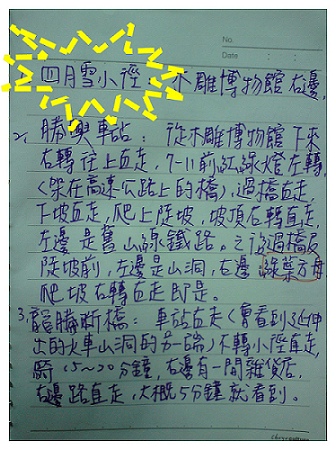 No.
Date : :
1. 四月雪小徑：木雕博物館右邊
2. 勝興車站：從木雕博物館下來
右轉往上直走，7-11前紅綠燈左轉
(架在高速公路上的橋)，過橋直走，
下坡直走，爬上陡坡，坡頂右轉直走
左邊是舊山線鐵路。之後過橋及
陡坡前，左邊是山洞，右邊綠葉方舟
爬坡右轉直走即是。
3. 龍騰斷橋：車站直走(會看到延伸
出的火車山洞的另一端)不轉小徑直走，
15~20分鐘，右邊有一間雜貨店，
右邊路直走，大概5分鐘就看到。